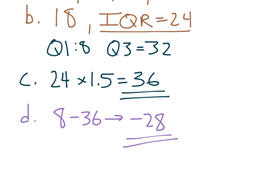 b. 18, IQR=24
Q1:8 Q3=32
c. 24 x 1.5 = 36
d. 8-36 → -28